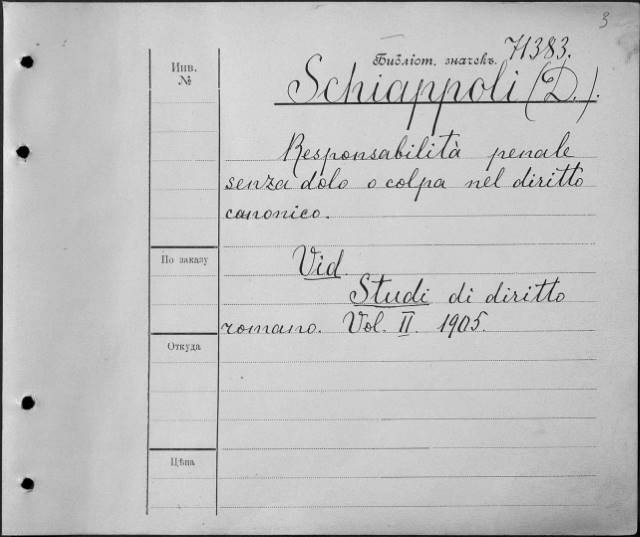 3
Инв.
№
Библіот. значекъ. 71383.
Schiappoli (D.).
Responsabilità penale
senza dolo o colpa nel diritto
canonico.
По заказу
Vid.
Studi di diritto
romano. Vol. II. 1905.
Откуда
Цѣна